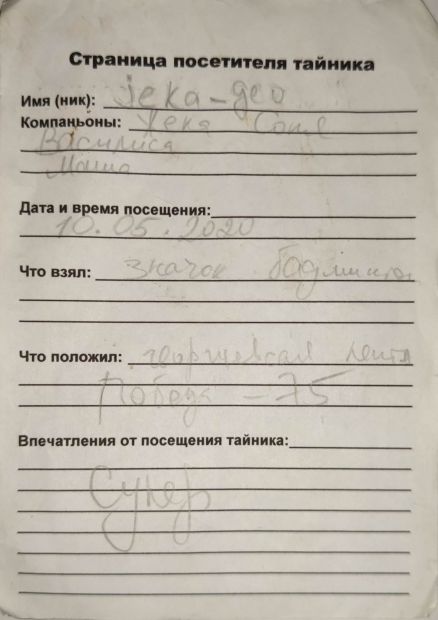 Страница посетителя тайника
Имя (ник): jeka-geo
Компаньоны: Жека Соня
Василиса
Маша
Дата и время посещения:
10.05.2020
Что взял: значок бадминтон
Что положил: георгиевская лента
Победа -75
Впечатления от посещения тайника:
Супер